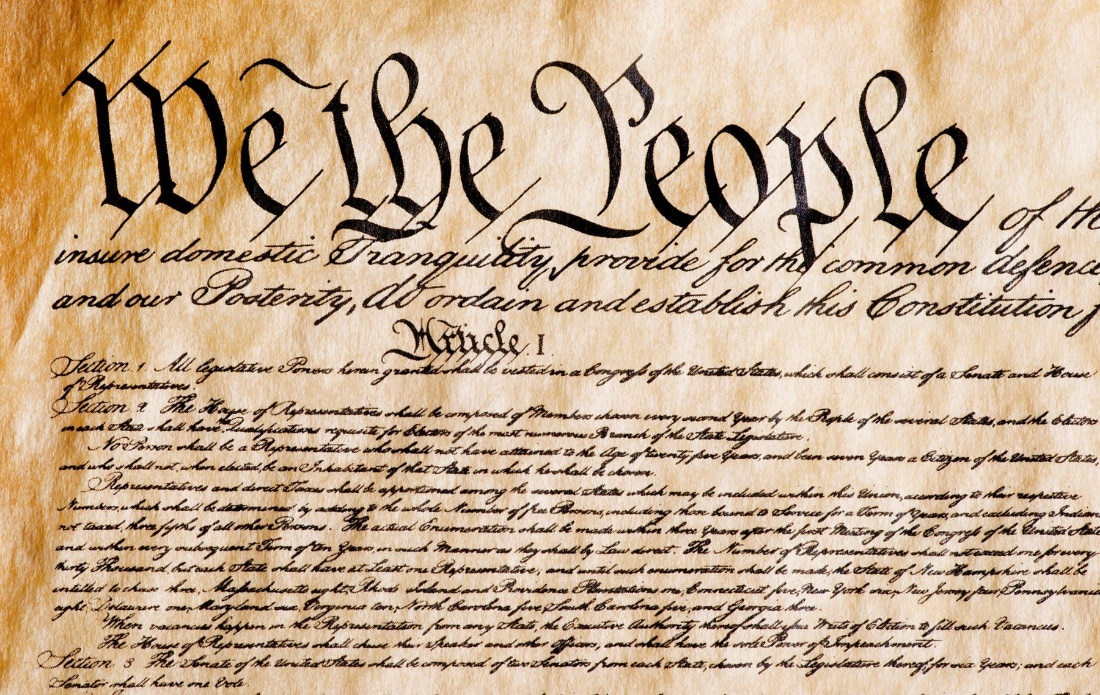 We the People of the
insure domestic Tranquility, provide for the common defence
and our Posterity, do ordain and establish this Constitution f
Article. I.
Section. 1. All legislative Powers herein granted shall be vested in a Congress of the United States, which shall consist of a Senate and House
of Representatives.
Section. 2. The House of Representatives shall be composed of Members chosen every second Year by the People of the several States, and the Electors
in each State shall have the Qualifications requisite for Electors of the most numerous Branch of the State Legislature.
No Person shall be a Representative who shall not have attained to the Age of twenty five Years, and been seven Years a Citizen of the United States,
and who shall not, when elected, be an Inhabitant of that State in which he shall be chosen.
Representatives and direct Taxes shall be apportioned among the several States which may be included within this Union, according to their respective
Numbers, which shall be determined by adding to the whole Number of free Persons, including those bound to Service for a Term of Years, and excluding Indians
not taxed, three fifths of all other Persons. The actual Enumeration shall be made within three Years after the first Meeting of the Congress of the United States
and within every subsequent Term of ten Years, in such Manner as they shall by Law direct. The Number of Representatives shall not exceed one for every
thirty Thousand, but each State shall have at Least one Representative; and until such enumeration shall be made, the State of New Hampshire shall be
entitled to chuse three, Massachusetts eight, Rhode Island and Providence Plantations one, Connecticut five, New York six, New Jersey four, Pennsylvania
eight, Delaware one, Maryland six, Virginia ten, North Carolina five, South Carolina five, and Georgia three.
When vacancies happen in the Representation from any State, the Executive Authority thereof shall issue Writs of Election to fill such Vacancies.
The House of Representatives shall chuse their Speaker and other Officers; and shall have the sole Power of Impeachment.
Section. 3. The Senate of the United States shall be composed of two Senators from each State, chosen by the Legislature thereof, for six Years; and each
Senator shall have one Vote.